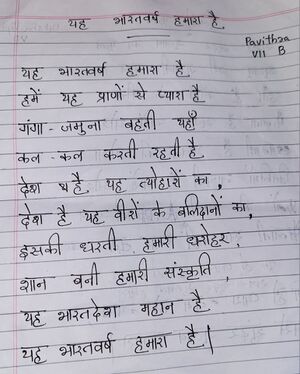 यह भारतवर्ष हमारा है
Pavithra
VII B
यह भारतवर्ष हमारा है
हमें यह प्राणों से प्यारा है
गंगा - जमुना बहती यहाँ
कल - कल करती रहती है
देश है यह त्योहारों का,
देश है यह वीरों के बलिदानों का,
इसकी धरती हमारी धरोहर,
शान बनी हमारी संस्कृति,
यह भारतदेश महान है
यह भारतवर्ष हमारा है|